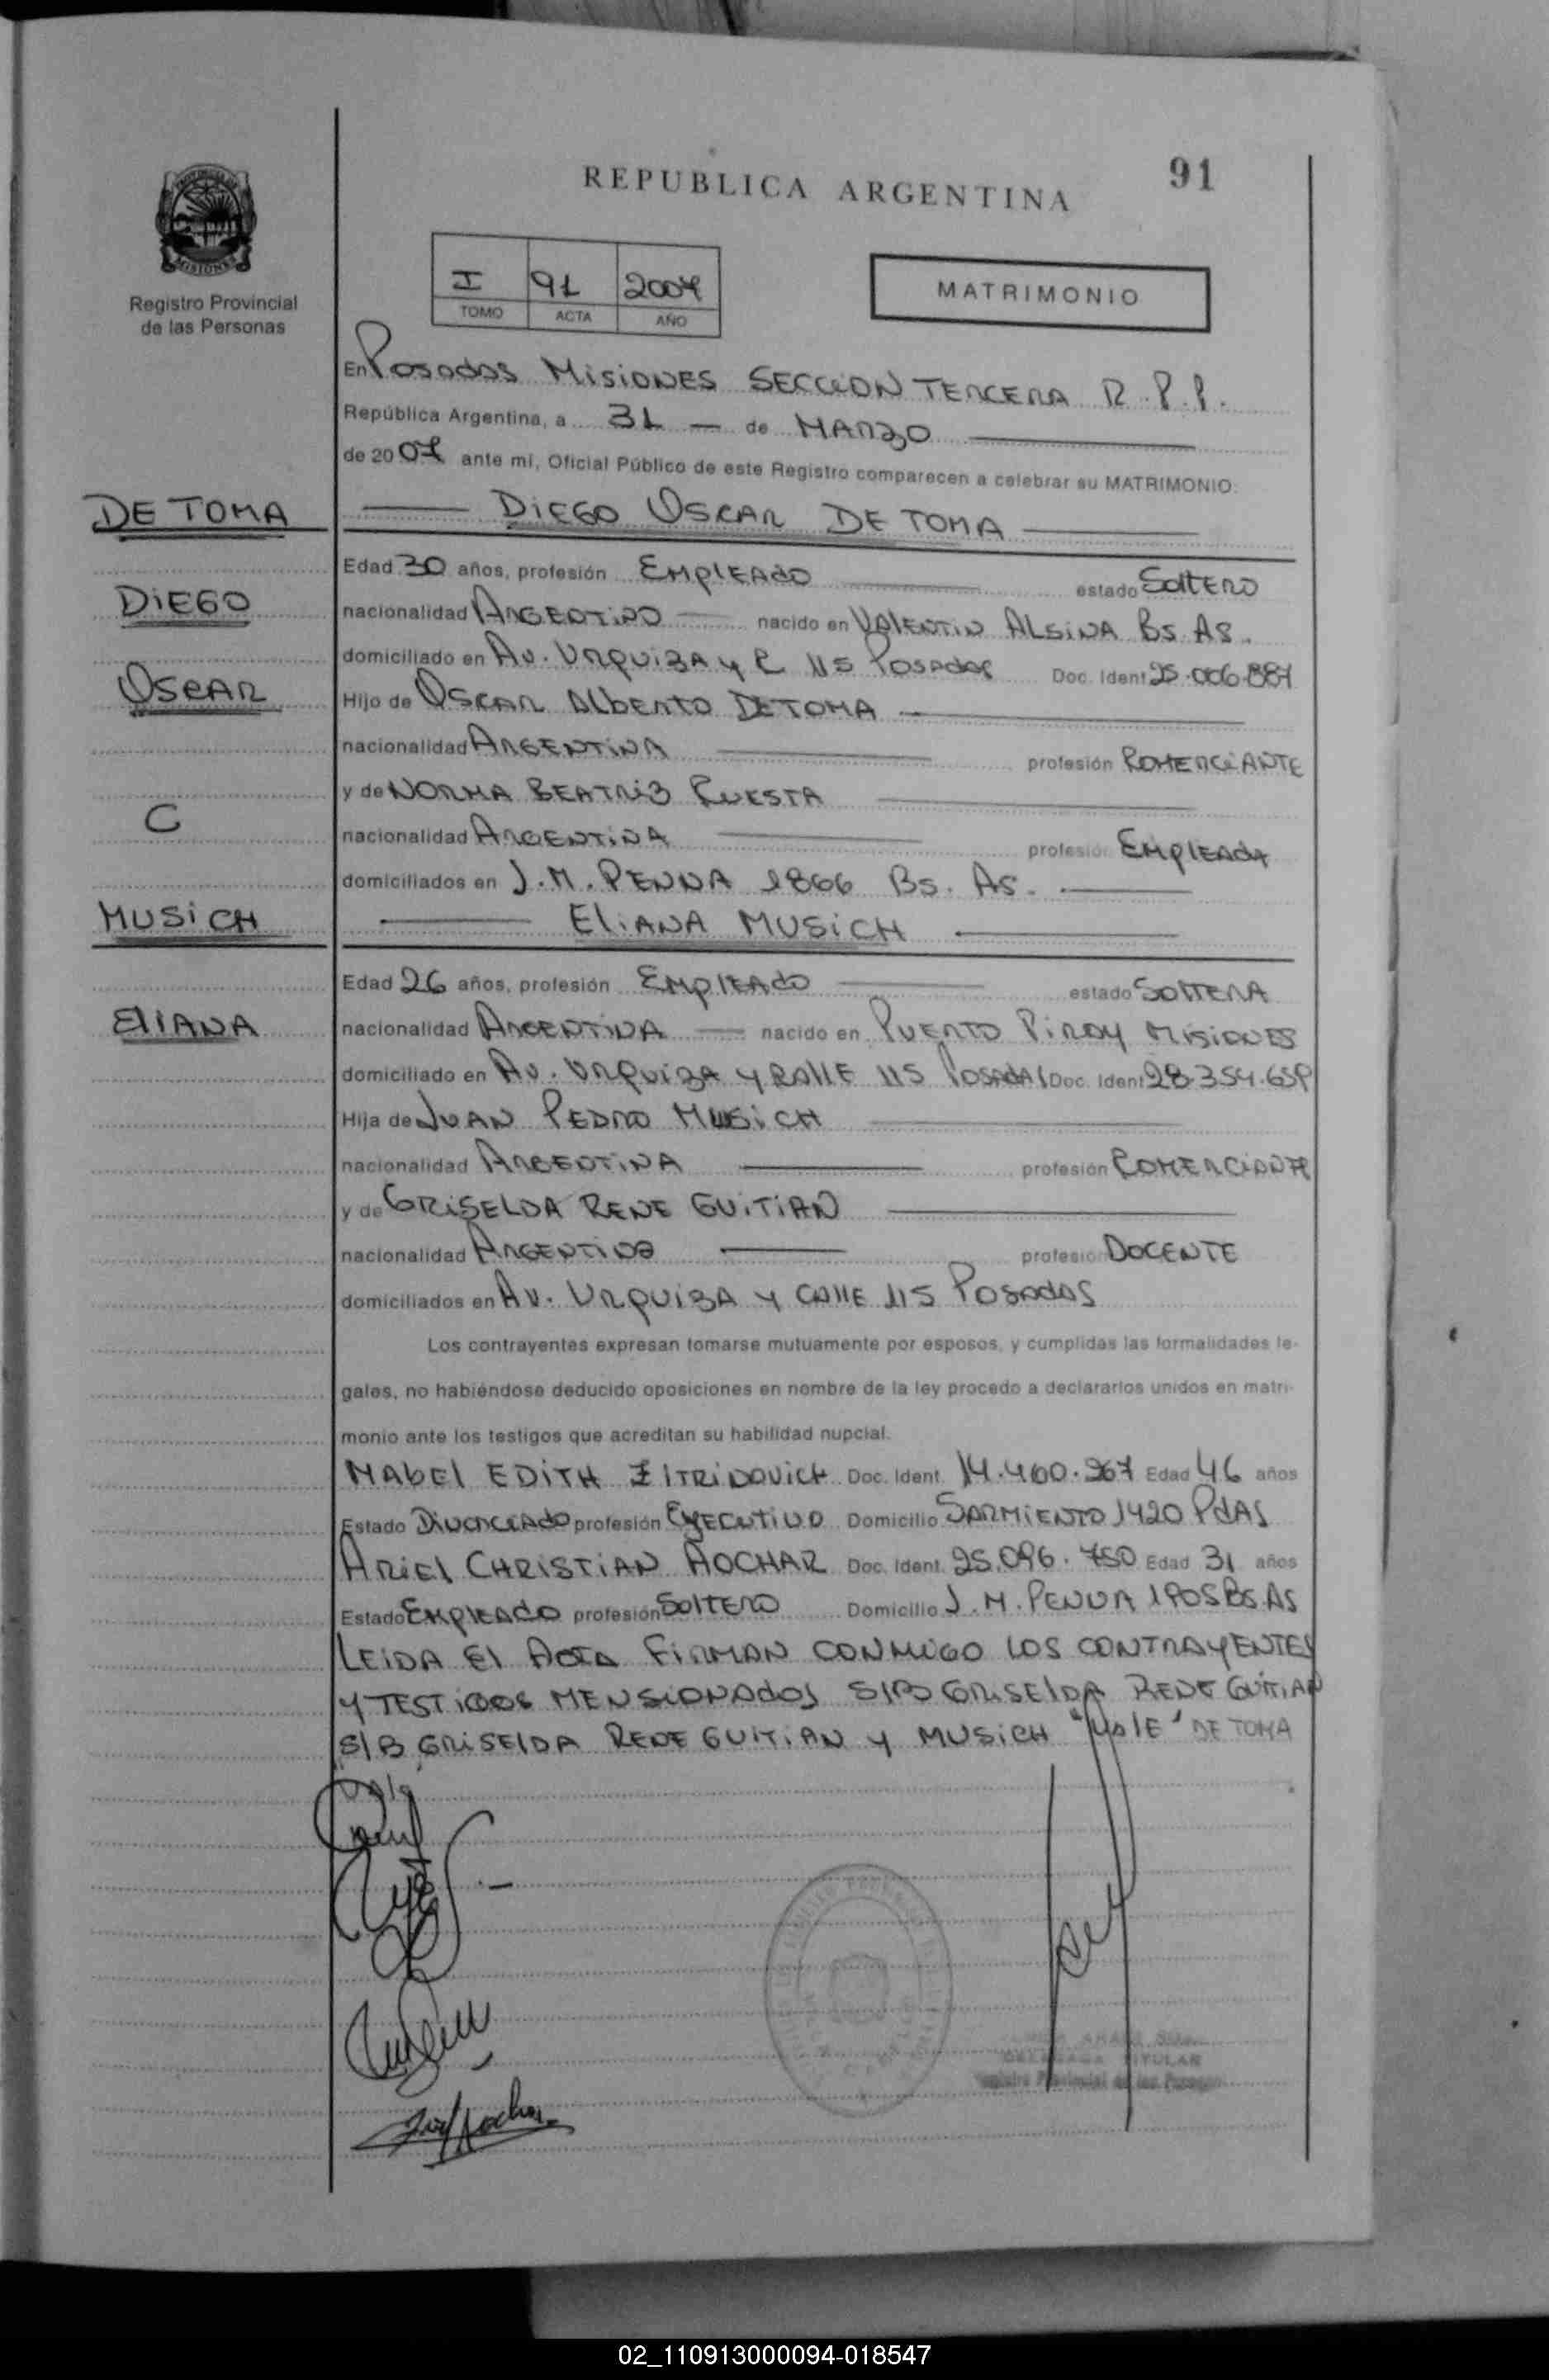 REPUBLICA ARGENTINA
91
Registro Provincial
de las Personas
I 91 2007
TOMO ACTA AÑO
MATRIMONIO
En Posadas Misiones SECCION TERCERA R.P.P.
República Argentina, a 31 — de MARZO
de 2007 ante mí, Oficial Público de este Registro comparecen a celebrar su MATRIMONIO:
DE TOMA
DIEGO OSCAR DE TOMA
Edad 30 años, profesión EMPLEADO estado SOLTERO
DIEGO
nacionalidad ARGENTINO — nacido en VALENTIN ALSINA Bs. AS.
domiciliado en AV. URQUIZA y C 115 Posadas Doc. Ident 25.006.887
OSCAR
Hijo de OSCAR ALBERTO DE TOMA
nacionalidad ARGENTINA profesión COMERCIANTE
y de NORMA BEATRIZ CUESTA
C
nacionalidad ARGENTINA profesión EMPLEADA
domiciliados en J.M. PENNA 1866 Bs. As.
MUSICH
ELIANA MUSICH
Edad 26 años, profesión EMPLEADO estado SOLTERA
ELIANA
nacionalidad ARGENTINA — nacido en PUERTO PIRAY MISIONES
domiciliado en AV. URQUIZA Y CALLE 115 POSADAS Doc. Ident 28.354.659
Hija de JUAN PEDRO MUSICH
nacionalidad ARGENTINA profesión COMERCIANTE
y de GRISELDA RENE GUITIAN
nacionalidad ARGENTINA profesión DOCENTE
domiciliados en AV. URQUIZA Y CALLE 115 POSADAS
Los contrayentes expresan tomarse mutuamente por esposos, y cumplidas las formalidades le-
gales, no habiéndose deducido oposiciones en nombre de la ley procedo a declararlos unidos en matri-
monio ante los testigos que acreditan su habilidad nupcial.
MABEL EDITH ZITRIDOVICH Doc. Ident. 14.460.267 Edad 46 años
Estado DIVORCIADO profesión EJECUTIVO Domicilio SARMIENTO 1420 PdAS
ARIEL CHRISTIAN AOCHAR Doc. Ident. 25.096.750 Edad 31 años
Estado EMPLEADO profesión SOLTERO Domicilio J.M. PENNA 1905 Bs. AS
LEIDA EL ACTA FIRMAN CONMIGO LOS CONTRAYENTES
Y TESTIGOS MENSIONADOS S/B GRISELDA RENE GUITIAN
S/B GRISELDA RENE GUITIAN Y MUSICH "VALE" DE TOMA
Vale
TITULAR
Registro Provincial de las Personas
02_110913000094-018547